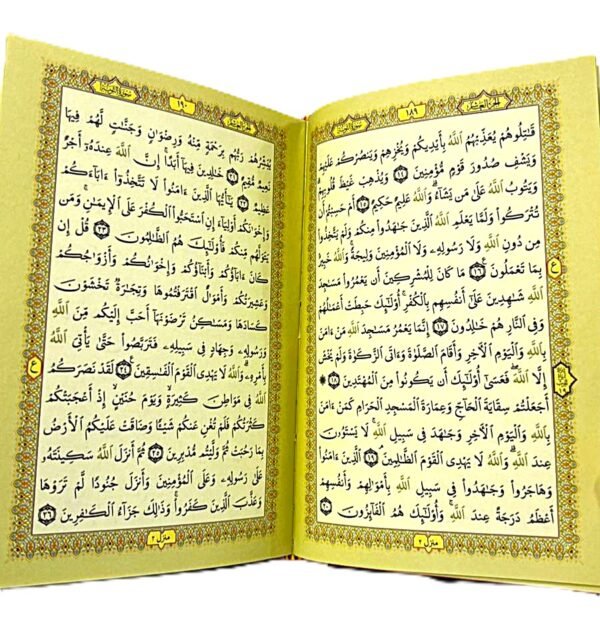 سورة التوبة
١٨٩
الجزء العاشر
قَٰتِلُوهُمْ يُعَذِّبْهُمُ ٱللَّهُ بِأَيْدِيكُمْ وَيُخْزِهِمْ وَيَنصُرْكُمْ عَلَيْهِمْ
وَيَشْفِ صُدُورَ قَوْمٍ مُّؤْمِنِينَ ١٤ وَيُذْهِبْ غَيْظَ قُلُوبِهِمْ
وَيَتُوبُ ٱللَّهُ عَلَىٰ مَن يَشَآءُ وَٱللَّهُ عَلِيمٌ حَكِيمٌ ١٥ أَمْ حَسِبْتُمْ أَن
تُتْرَكُوا۟ وَلَمَّا يَعْلَمِ ٱللَّهُ ٱلَّذِينَ جَٰهَدُوا۟ مِنكُمْ وَلَمْ يَتَّخِذُوا۟
مِن دُونِ ٱللَّهِ وَلَا رَسُولِهِۦ وَلَا ٱلْمُؤْمِنِينَ وَلِيجَةً وَٱللَّهُ خَبِيرٌۢ
بِمَا تَعْمَلُونَ ١٦ مَا كَانَ لِلْمُشْرِكِينَ أَن يَعْمُرُوا۟ مَسَٰجِدَ
ٱللَّهِ شَٰهِدِينَ عَلَىٰٓ أَنفُسِهِم بِٱلْكُفْرِ أُو۟لَٰٓئِكَ حَبِطَتْ أَعْمَٰلُهُمْ
وَفِى ٱلنَّارِ هُمْ خَٰلِدُونَ ١٧ إِنَّمَا يَعْمُرُ مَسَٰجِدَ ٱللَّهِ مَنْ ءَامَنَ
بِٱللَّهِ وَٱلْيَوْمِ ٱلْءَاخِرِ وَأَقَامَ ٱلصَّلَوٰةَ وَءَاتَى ٱلزَّكَوٰةَ وَلَمْ يَخْشَ
إِلَّا ٱللَّهَ فَعَسَىٰٓ أُو۟لَٰٓئِكَ أَن يَكُونُوا۟ مِنَ ٱلْمُهْتَدِينَ ١٨
أَجَعَلْتُمْ سِقَايَةَ ٱلْحَآجِّ وَعِمَارَةَ ٱلْمَسْجِدِ ٱلْحَرَامِ كَمَنْ ءَامَنَ
بِٱللَّهِ وَٱلْيَوْمِ ٱلْءَاخِرِ وَجَٰهَدَ فِى سَبِيلِ ٱللَّهِ لَا يَسْتَوُۥنَ
عِندَ ٱللَّهِ وَٱللَّهُ لَا يَهْدِى ٱلْقَوْمَ ٱلظَّٰلِمِينَ ١٩ ٱلَّذِينَ ءَامَنُوا۟
وَهَاجَرُوا۟ وَجَٰهَدُوا۟ فِى سَبِيلِ ٱللَّهِ بِأَمْوَٰلِهِمْ وَأَنفُسِهِمْ
أَعْظَمُ دَرَجَةً عِندَ ٱللَّهِ وَأُو۟لَٰٓئِكَ هُمُ ٱلْفَآئِزُونَ ٢٠
منزل ٢
ع
سورة التوبة
١٩٠
الجزء العاشر
يُبَشِّرُهُمْ رَبُّهُم بِرَحْمَةٍ مِّنْهُ وَرِضْوَٰنٍ وَجَنَّٰتٍ لَّهُمْ فِيهَا
نَعِيمٌ مُّقِيمٌ ٢١ خَٰلِدِينَ فِيهَآ أَبَدًا إِنَّ ٱللَّهَ عِندَهُۥٓ أَجْرٌ
عَظِيمٌ ٢٢ يَٰٓأَيُّهَا ٱلَّذِينَ ءَامَنُوا۟ لَا تَتَّخِذُوٓا۟ ءَابَآءَكُمْ
وَإِخْوَٰنَكُمْ أَوْلِيَآءَ إِنِ ٱسْتَحَبُّوا۟ ٱلْكُفْرَ عَلَى ٱلْإِيمَٰنِ وَمَن
يَتَوَلَّهُم مِّنكُمْ فَأُو۟لَٰٓئِكَ هُمُ ٱلظَّٰلِمُونَ ٢٣ قُلْ إِن
كَانَ ءَابَآؤُكُمْ وَأَبْنَآؤُكُمْ وَإِخْوَٰنُكُمْ وَأَزْوَٰجُكُمْ
وَعَشِيرَتُكُمْ وَأَمْوَٰلٌ ٱقْتَرَفْتُمُوهَا وَتِجَٰرَةٌ تَخْشَوْنَ
كَسَادَهَا وَمَسَٰكِنُ تَرْضَوْنَهَآ أَحَبَّ إِلَيْكُم مِّنَ ٱللَّهِ
وَرَسُولِهِۦ وَجِهَادٍ فِى سَبِيلِهِۦ فَتَرَبَّصُوا۟ حَتَّىٰ يَأْتِىَ ٱللَّهُ
بِأَمْرِهِۦ وَٱللَّهُ لَا يَهْدِى ٱلْقَوْمَ ٱلْفَٰسِقِينَ ٢٤ لَقَدْ نَصَرَكُمُ
ٱللَّهُ فِى مَوَاطِنَ كَثِيرَةٍ وَيَوْمَ حُنَيْنٍ إِذْ أَعْجَبَتْكُمْ
كَثْرَتُكُمْ فَلَمْ تُغْنِ عَنكُمْ شَيْـًٔا وَضَاقَتْ عَلَيْكُمُ ٱلْأَرْضُ
بِمَا رَحُبَتْ ثُمَّ وَلَّيْتُم مُّدْبِرِينَ ٢٥ ثُمَّ أَنزَلَ ٱللَّهُ سَكِينَتَهُۥ
عَلَىٰ رَسُولِهِۦ وَعَلَى ٱلْمُؤْمِنِينَ وَأَنزَلَ جُنُودًا لَّمْ تَرَوْهَا
وَعَذَّبَ ٱلَّذِينَ كَفَرُوا۟ وَذَٰلِكَ جَزَآءُ ٱلْكَٰفِرِينَ ٢٦
منزل ٢
ع